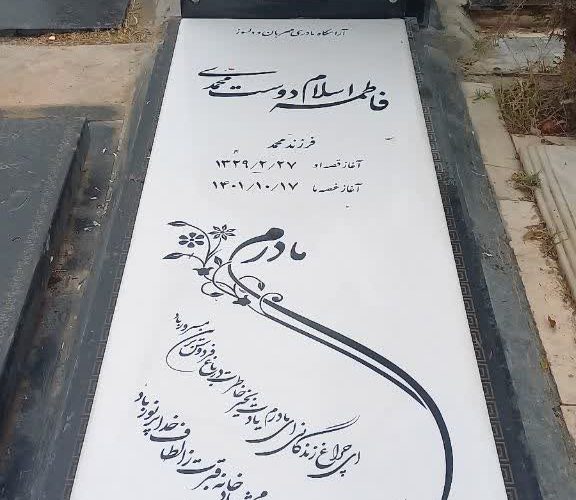 آرامگاه مادری مهربان و دلسوز
فاطمه اسلام دوست محمدی
فرزند محمد
آغاز قصه او ۱۳۲۹/۲/۲۷
آغاز غصه ما ۱۴۰۱/۱۰/۱۷
مادرم
ای چراغ زندگانی ای مادرم یادت بخیر
خاطرت در باغ فردوس برین مسرور باد
خانه قبرت ز الطاف خدا پر نور باد